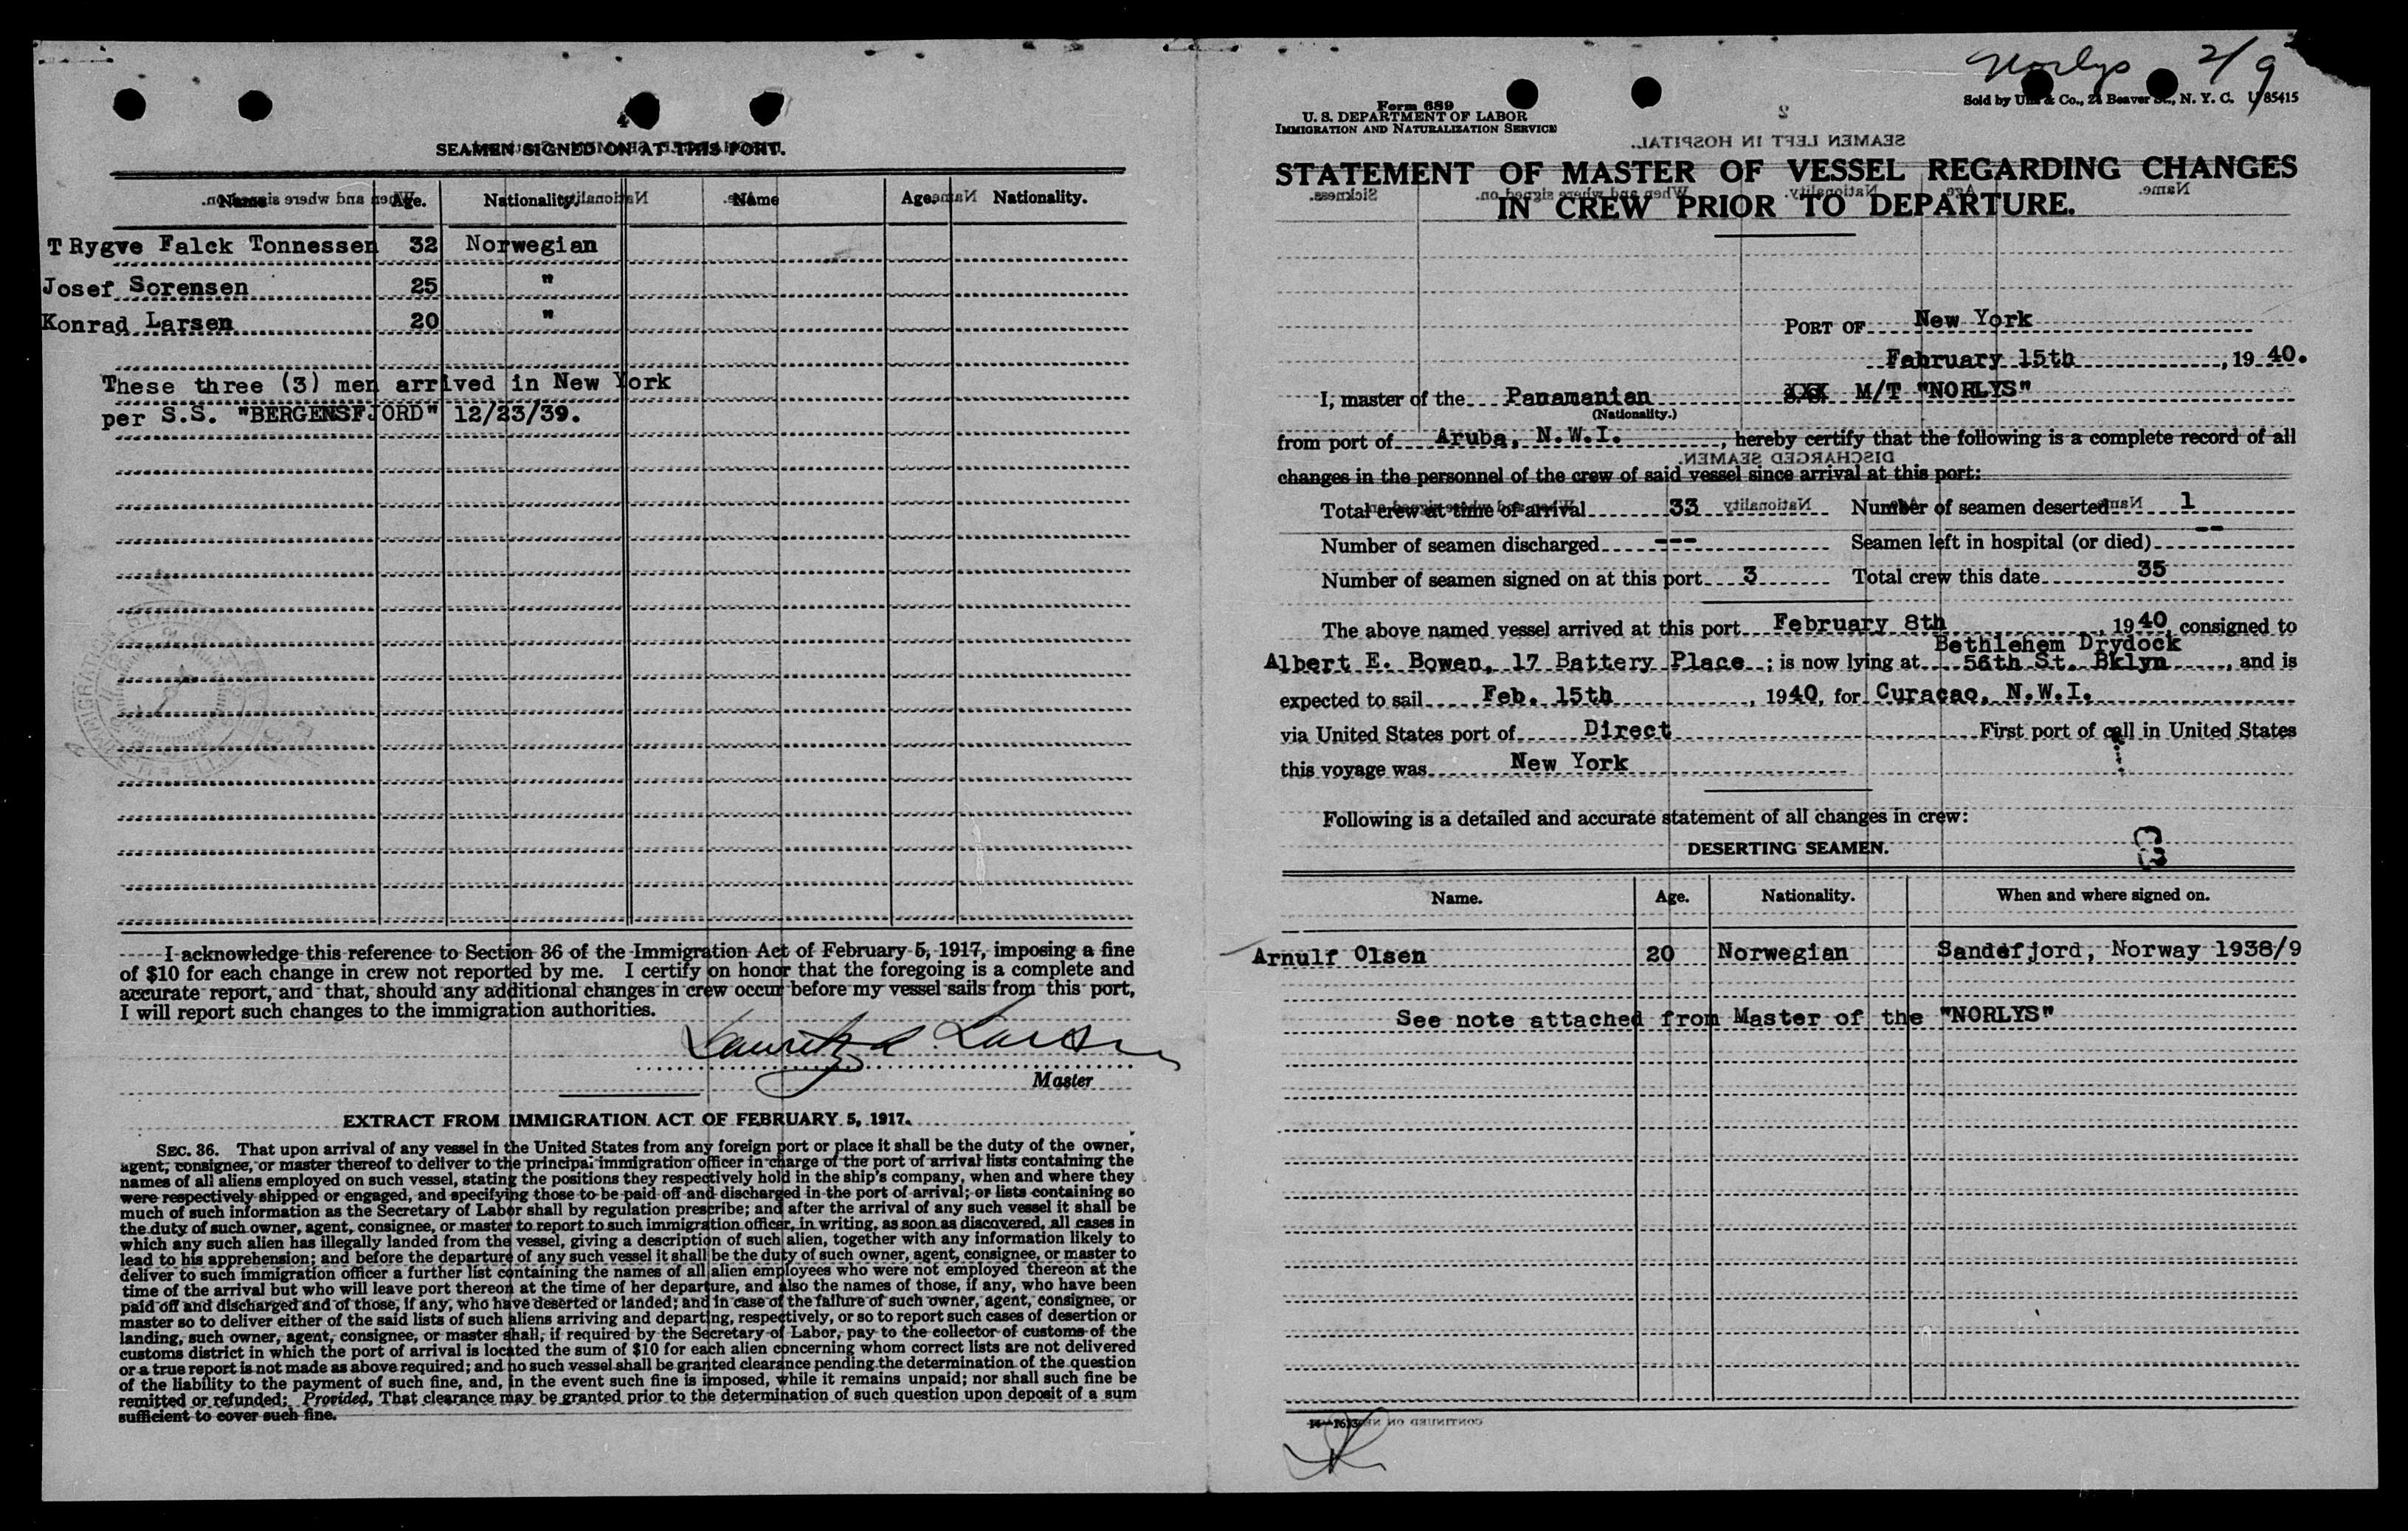 4
SEAMEN SIGNED ON AT THIS PORT.
Name Age. Nationality. Name Age. Nationality.
TRygve Falck Tonnessen 32 Norwegian
Josef Sorensen 25 "
Konrad Larsen 20 "
These three (3) men arrived in New York
per S.S. "BERGENSFJORD" 12/23/39.
I acknowledge this reference to Section 36 of the Immigration Act of February 5, 1917, imposing a fine
of $10 for each change in crew not reported by me. I certify on honor that the foregoing is a complete and
accurate report, and that, should any additional changes in crew occur before my vessel sails from this port,
I will report such changes to the immigration authorities.
Master
EXTRACT FROM IMMIGRATION ACT OF FEBRUARY 5, 1917.
SEC. 36. That upon arrival of any vessel in the United States from any foreign port or place it shall be the duty of the owner,
agent, consignee, or master thereof to deliver to the principal immigration officer in charge of the port of arrival lists containing the
names of all aliens employed on such vessel, stating the positions they respectively hold in the ship's company, when and where they
were respectively shipped or engaged, and specifying those to be paid off and discharged in the port of arrival; or lists containing so
much of such information as the Secretary of Labor shall by regulation prescribe; and after the arrival of any such vessel it shall be
the duty of such owner, agent, consignee, or master to report to such immigration officer, in writing, as soon as discovered, all cases in
which any such alien has illegally landed from the vessel, giving a description of such alien, together with any information likely to
lead to his apprehension; and before the departure of any such vessel it shall be the duty of such owner, agent, consignee, or master to
deliver to such immigration officer a further list containing the names of all alien employees who were not employed thereon at the
time of the arrival but who will leave port thereon at the time of her departure, and also the names of those, if any, who have been
paid off and discharged and of those, if any, who have deserted or landed; and in case of the failure of such owner, agent, consignee, or
master so to deliver either of the said lists of such aliens arriving and departing, respectively, or so to report such cases of desertion or
landing, such owner, agent, consignee, or master shall, if required by the Secretary of Labor, pay to the collector of customs of the
customs district in which the port of arrival is located the sum of $10 for each alien concerning whom correct lists are not delivered
or a true report is not made as above required; and no such vessel shall be granted clearance pending the determination of the question
of the liability to the payment of such fine, and, in the event such fine is imposed, while it remains unpaid; nor shall such fine be
remitted or refunded: Provided, That clearance may be granted prior to the determination of such question upon deposit of a sum
sufficient to cover such fine.
Norlys 2/9
Form 689
U. S. DEPARTMENT OF LABOR
IMMIGRATION AND NATURALIZATION SERVICE
Sold by & Co., 24 Beaver St., N. Y. C. U 85415
STATEMENT OF MASTER OF VESSEL REGARDING CHANGES
IN CREW PRIOR TO DEPARTURE.
PORT OF New York
February 15th, 19 40.
I, master of the Panamanian XXX M/T "NORLYS"
(Nationality.)
from port of Aruba, N.W.I., hereby certify that the following is a complete record of all
changes in the personnel of the crew of said vessel since arrival at this port:
Total crew at time of arrival 33 Number of seamen deserted 1
Number of seamen discharged --- Seamen left in hospital (or died) --
Number of seamen signed on at this port 3 Total crew this date 35
The above named vessel arrived at this port February 8th, 19 40 consigned to
Bethlehem Drydock
Albert E. Bowen, 17 Battery Place; is now lying at 56th St. Bklyn, and is
expected to sail Feb. 15th, 1940, for Curacao, N.W.I.
via United States port of Direct First port of call in United States
this voyage was New York
Following is a detailed and accurate statement of all changes in crew:
DESERTING SEAMEN.
Name. Age. Nationality. When and where signed on.
Arnulf Olsen 20 Norwegian Sandefjord, Norway 1938/9
See note attached from Master of the "NORLYS"